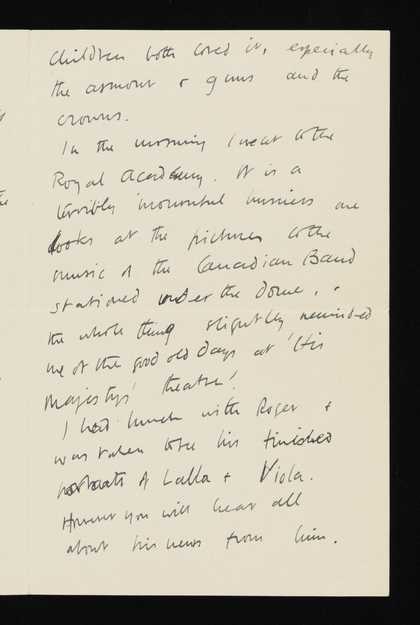 children both loved it, especially
the armour & guns and the
crowns.
In the morning I went to the
Royal Academy. It is a
terribly mournful business one
looks at the pictures to the
music of the Canadian Band
stationed under the Dome, &
the whole thing slightly reminded
me of the good old days at 'His
Majesty's' theatre!
I had lunch with Roger &
was taken to see his finished
portraits of Lalla & Viola.
However you will hear all
about his news from him.